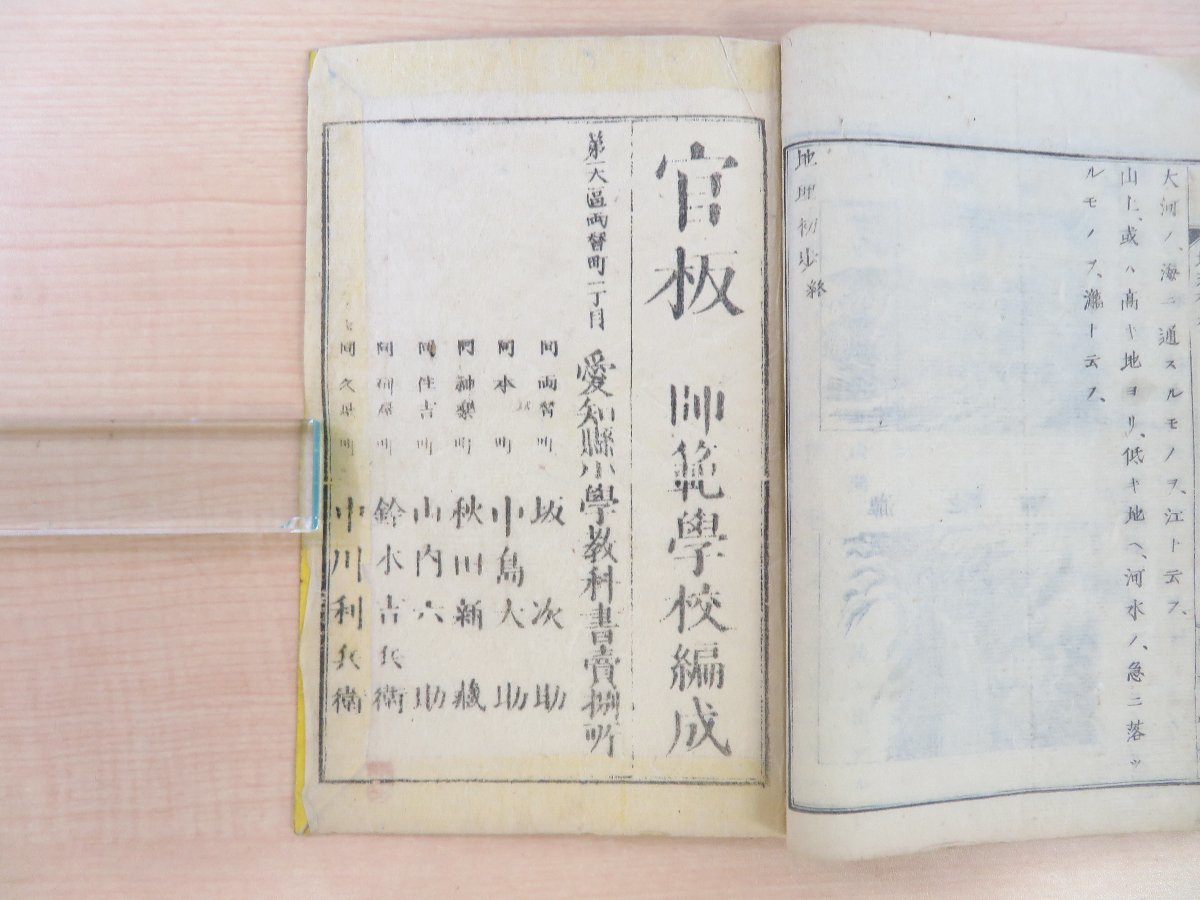 大河ノ、海ニ通スルモノヲ、江ト云フ、
山上、或ハ高キ地ヨリ、低キ地ヘ、河水ノ、急ニ落ツ
ルモノヲ、瀧ト云フ、
地理初歩終
官板 師範學校編成
第一大區両替町一丁目 愛知縣小學教科書賣捌所
同両替町 坂次助
同本町 小島大助
同神樂町 秋田新藏
同住吉町 山内六助
鈴木吉兵衛
中川利兵衛